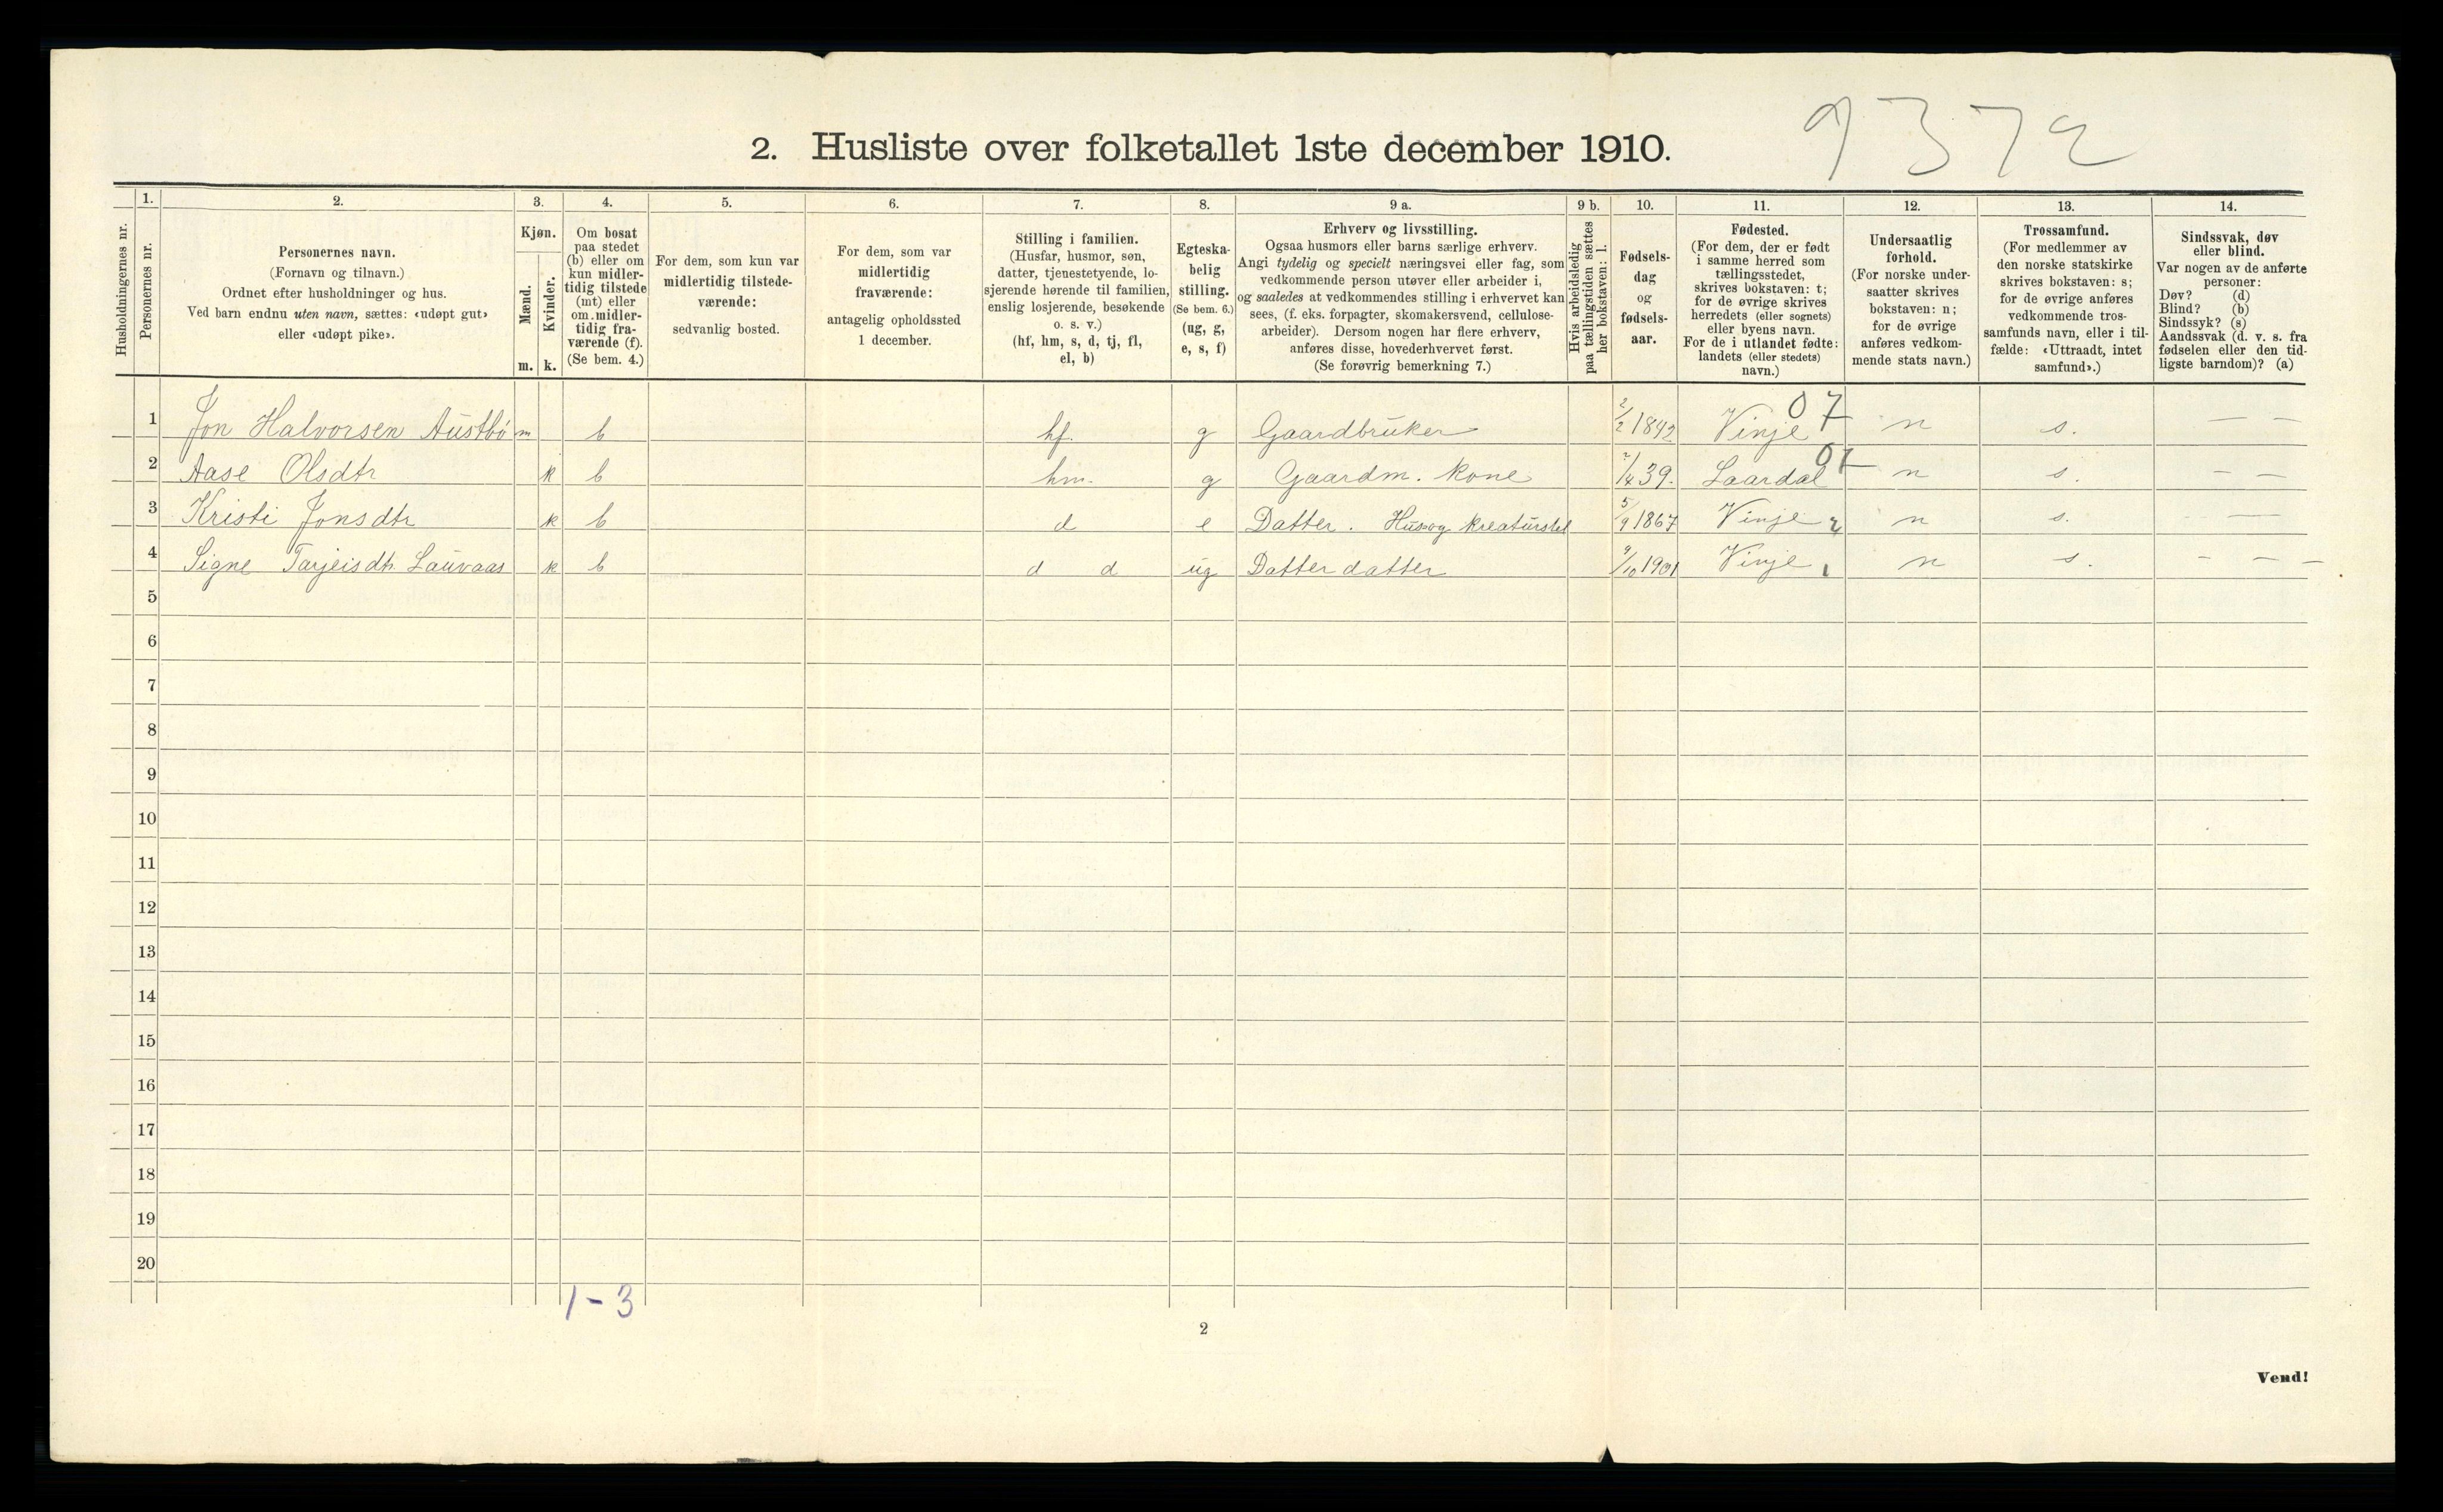 2. Husliste over folketallet 1ste december 1910.
9372
Husholdningernes nr.
1.
Personernes nr.
2.
Personernes navn.
(Fornavn og tilnavn.)
Ordnet efter husholdninger og hus.
Ved barn endnu uten navn, sættes: «udøpt gut»
eller «udøpt pike».
3.
Kjøn.
Mænd.
Kvinder.
m. k.
4.
Om bosat
paa stedet
(b) eller om
kun midler-
tidig tilstede
(mt) eller
om midler-
tidig fra-
værende (f).
(Se bem. 4.)
5.
For dem, som kun var
midlertidig tilstede-
værende:
sedvanlig bosted.
6.
For dem, som var
midlertidig
fraværende:
antagelig opholdssted
1 december.
7.
Stilling i familien.
(Husfar, husmor, søn,
datter, tjenestetyende, lo-
sjerende hørende til familien,
enslig losjerende, besøkende
o. s. v.)
(hf, hm, s, d, tj, fl,
el, b)
8.
Egteska-
belig
stilling.
(Se bem. 6.)
(ug, g,
e, s, f)
9 a.
Erhverv og livsstilling.
Ogsaa husmors eller barns særlige erhverv.
Angi tydelig og specielt næringsvei eller fag, som
vedkommende person utøver eller arbeider i,
og saaledes at vedkommendes stilling i erhvervet kan
sees, (f. eks. forpagter, skomakersvend, cellulose-
arbeider). Dersom nogen har flere erhverv,
anføres disse, hovederhvervet først.
(Se forøvrig bemerkning 7.)
9 b.
Hvis arbeidsledig
paa tællingstiden sættes
her bokstaven: l.
10.
Fødsels-
dag
og
fødsels-
aar.
11.
Fødested.
(For dem, der er født
i samme herred som
tællingsstedet,
skrives bokstaven: t;
for de øvrige skrives
herredets (eller sognets)
eller byens navn.
For de i utlandet fødte:
landets (eller stedets)
navn.)
12.
Undersaatlig
forhold.
(For norske under-
saatter skrives
bokstaven: n;
for de øvrige
anføres vedkom-
mende stats navn.)
13.
Trossamfund.
(For medlemmer av
den norske statskirke
skrives bokstaven: s;
for de øvrige anføres
vedkommende tros-
samfunds navn, eller i til-
fælde: «Uttraadt, intet
samfund».)
14.
Sindssvak, døv
eller blind.
Var nogen av de anførte
personer:
Døv? (d)
Blind? (b)
Sindssyk? (s)
Aandssvak (d. v. s. fra
fødselen eller den tid-
ligste barndom)? (a)
1 Jon Halvorsen Austbö m b hf. g Gaardbruker 2/2 1842 Vinje 07 n s. — —
2 Aase Olsdtr k b hm. g Gaardm. Kone 7/4 39. Laardal 07 n s. — —
3 Kristi Jonsdtr k b d e Datter. Hus og kreaturstel 5/9 1867 Vinje n s. — —
4 Signe Tarjeisdtr Lauvaas k b d d ug Datterdatter 9/10 1901 Vinje n s. — —
5
6
7
8
9
10
11
12
13
14
15
16
17
18
19
20
1-3
2
Vend!